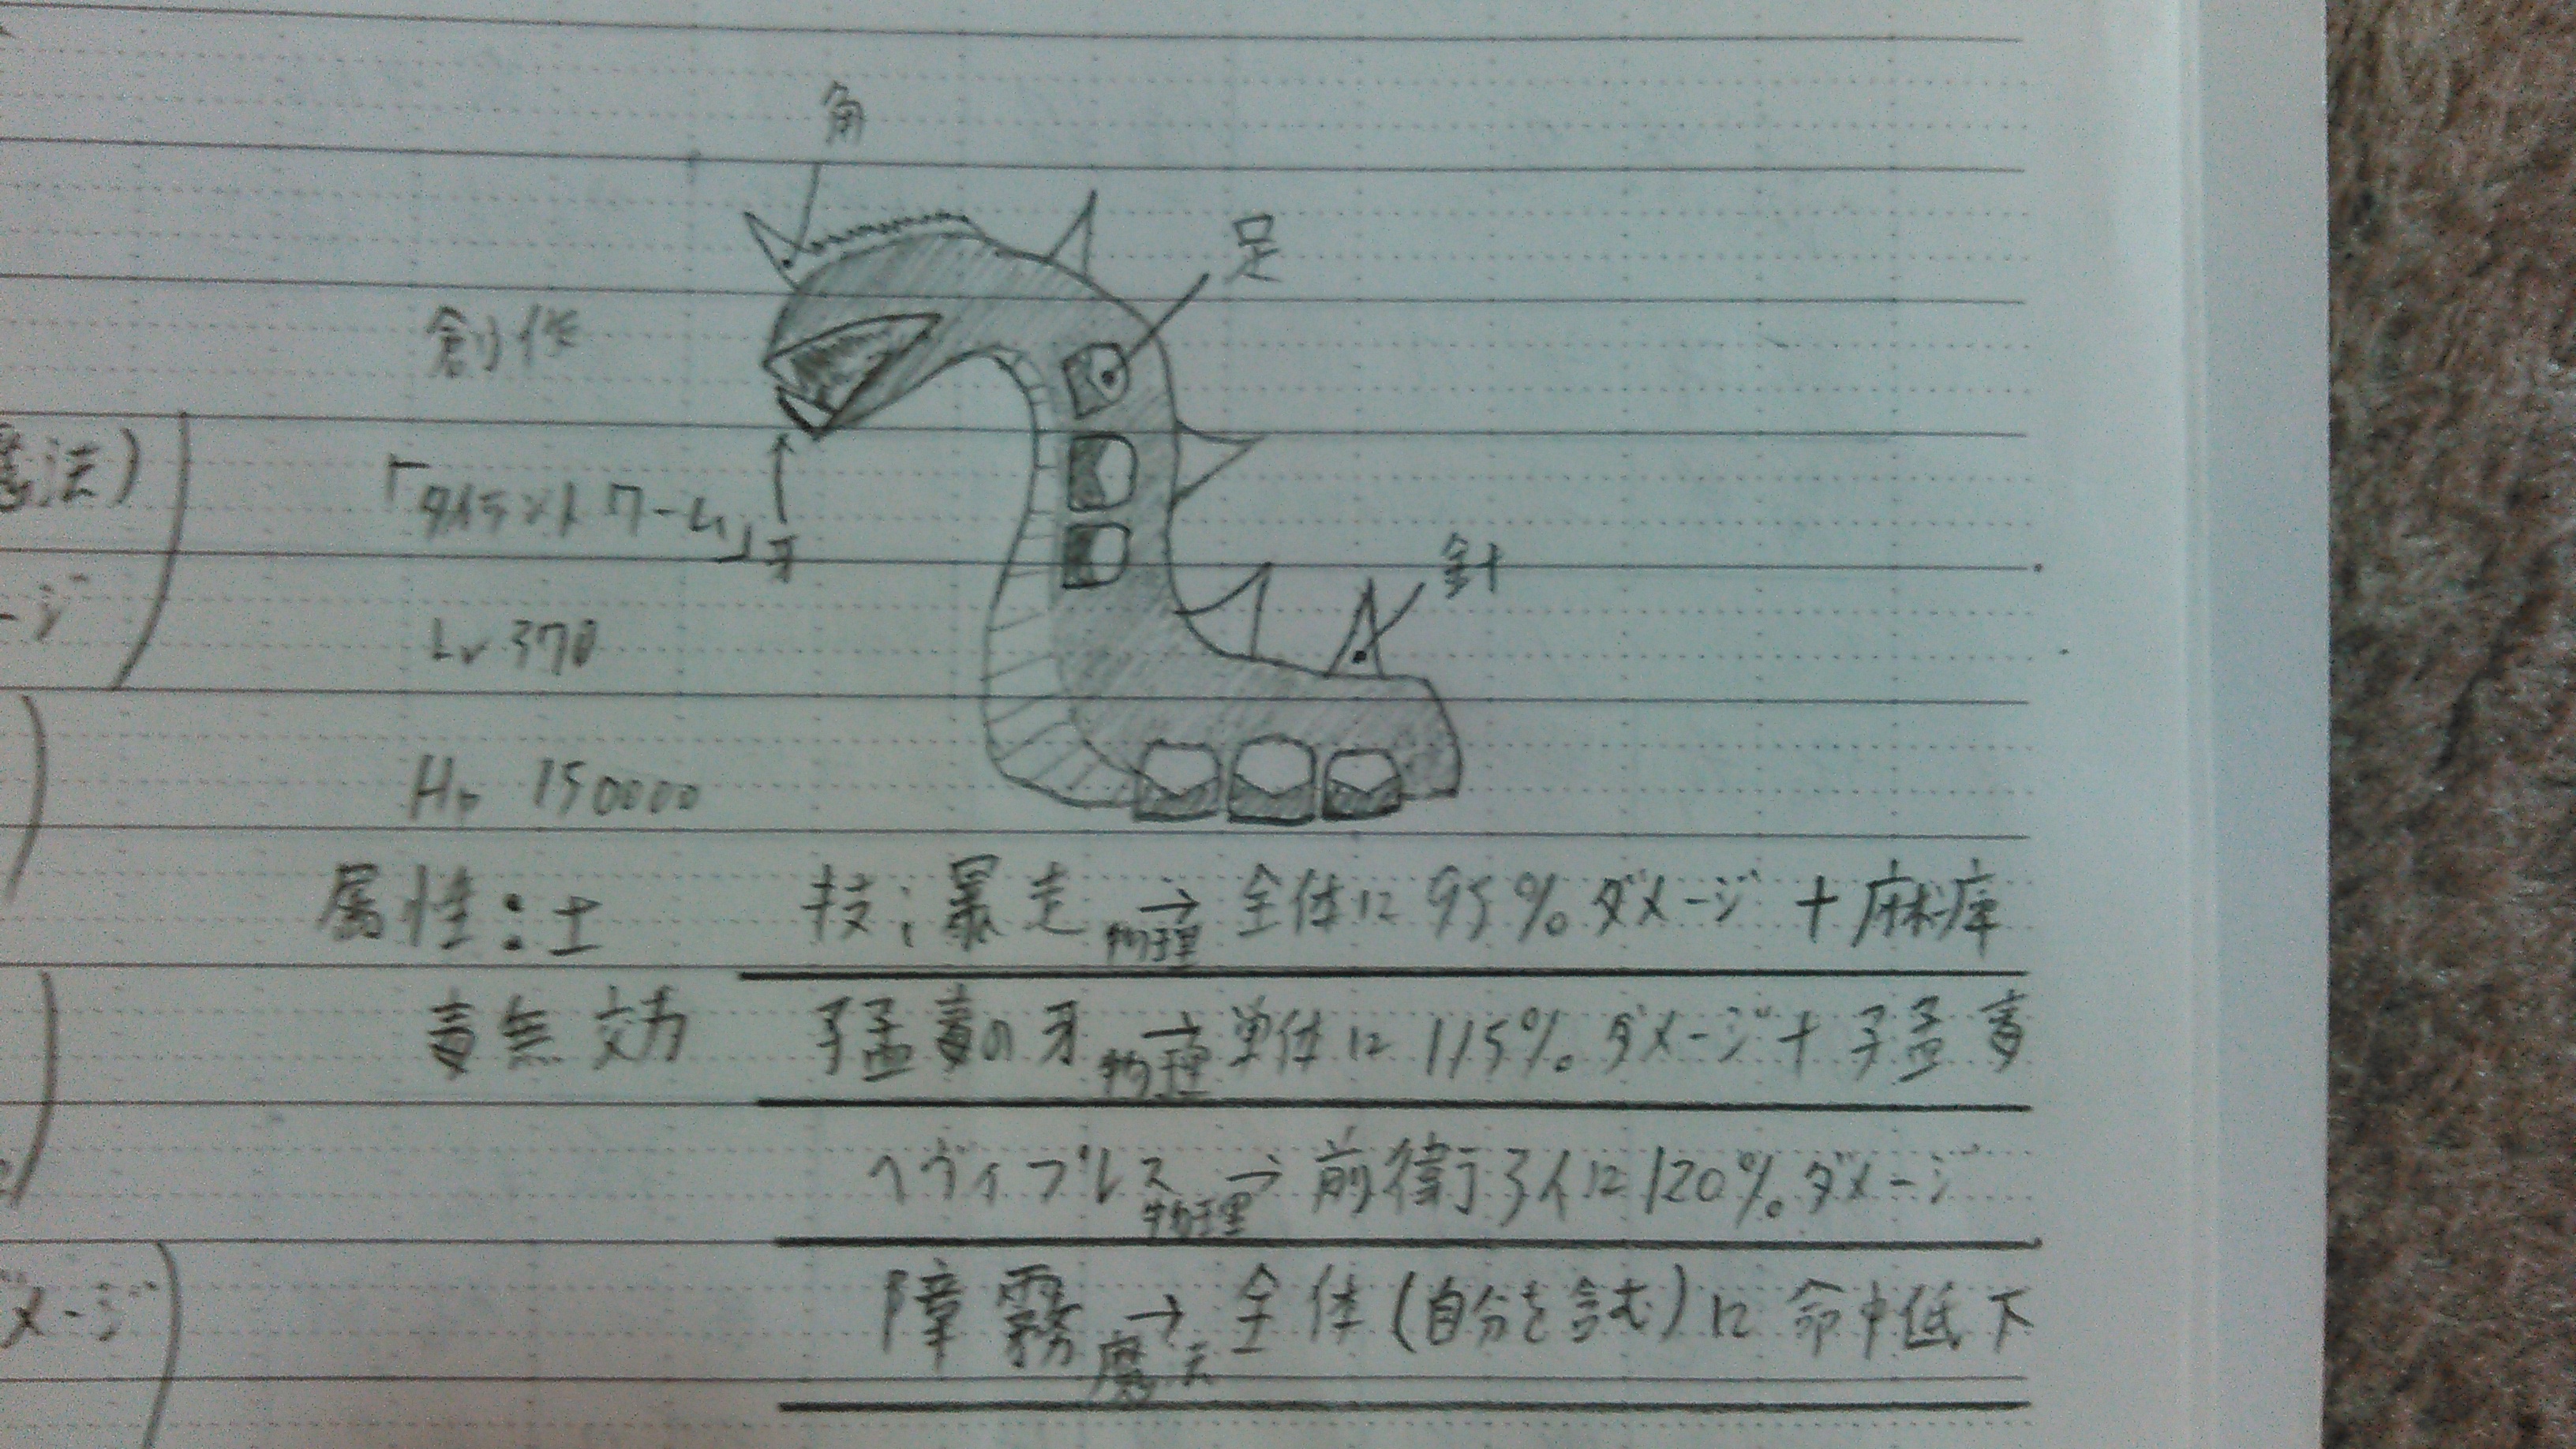 角
足
創作
魔法)
「タイラントワーム」
牙
針
ージ
Lv 370
Hp 150000
属性:土
技;暴走→全体に95%ダメージ+麻痺
物理
毒無効
猛毒の牙→単体に115%ダメージ+猛毒
物理
ヘヴィプレス→前衛3人に120%ダメージ
物理
障霧→全体(自分を含む)に命中低下
魔法
メージ